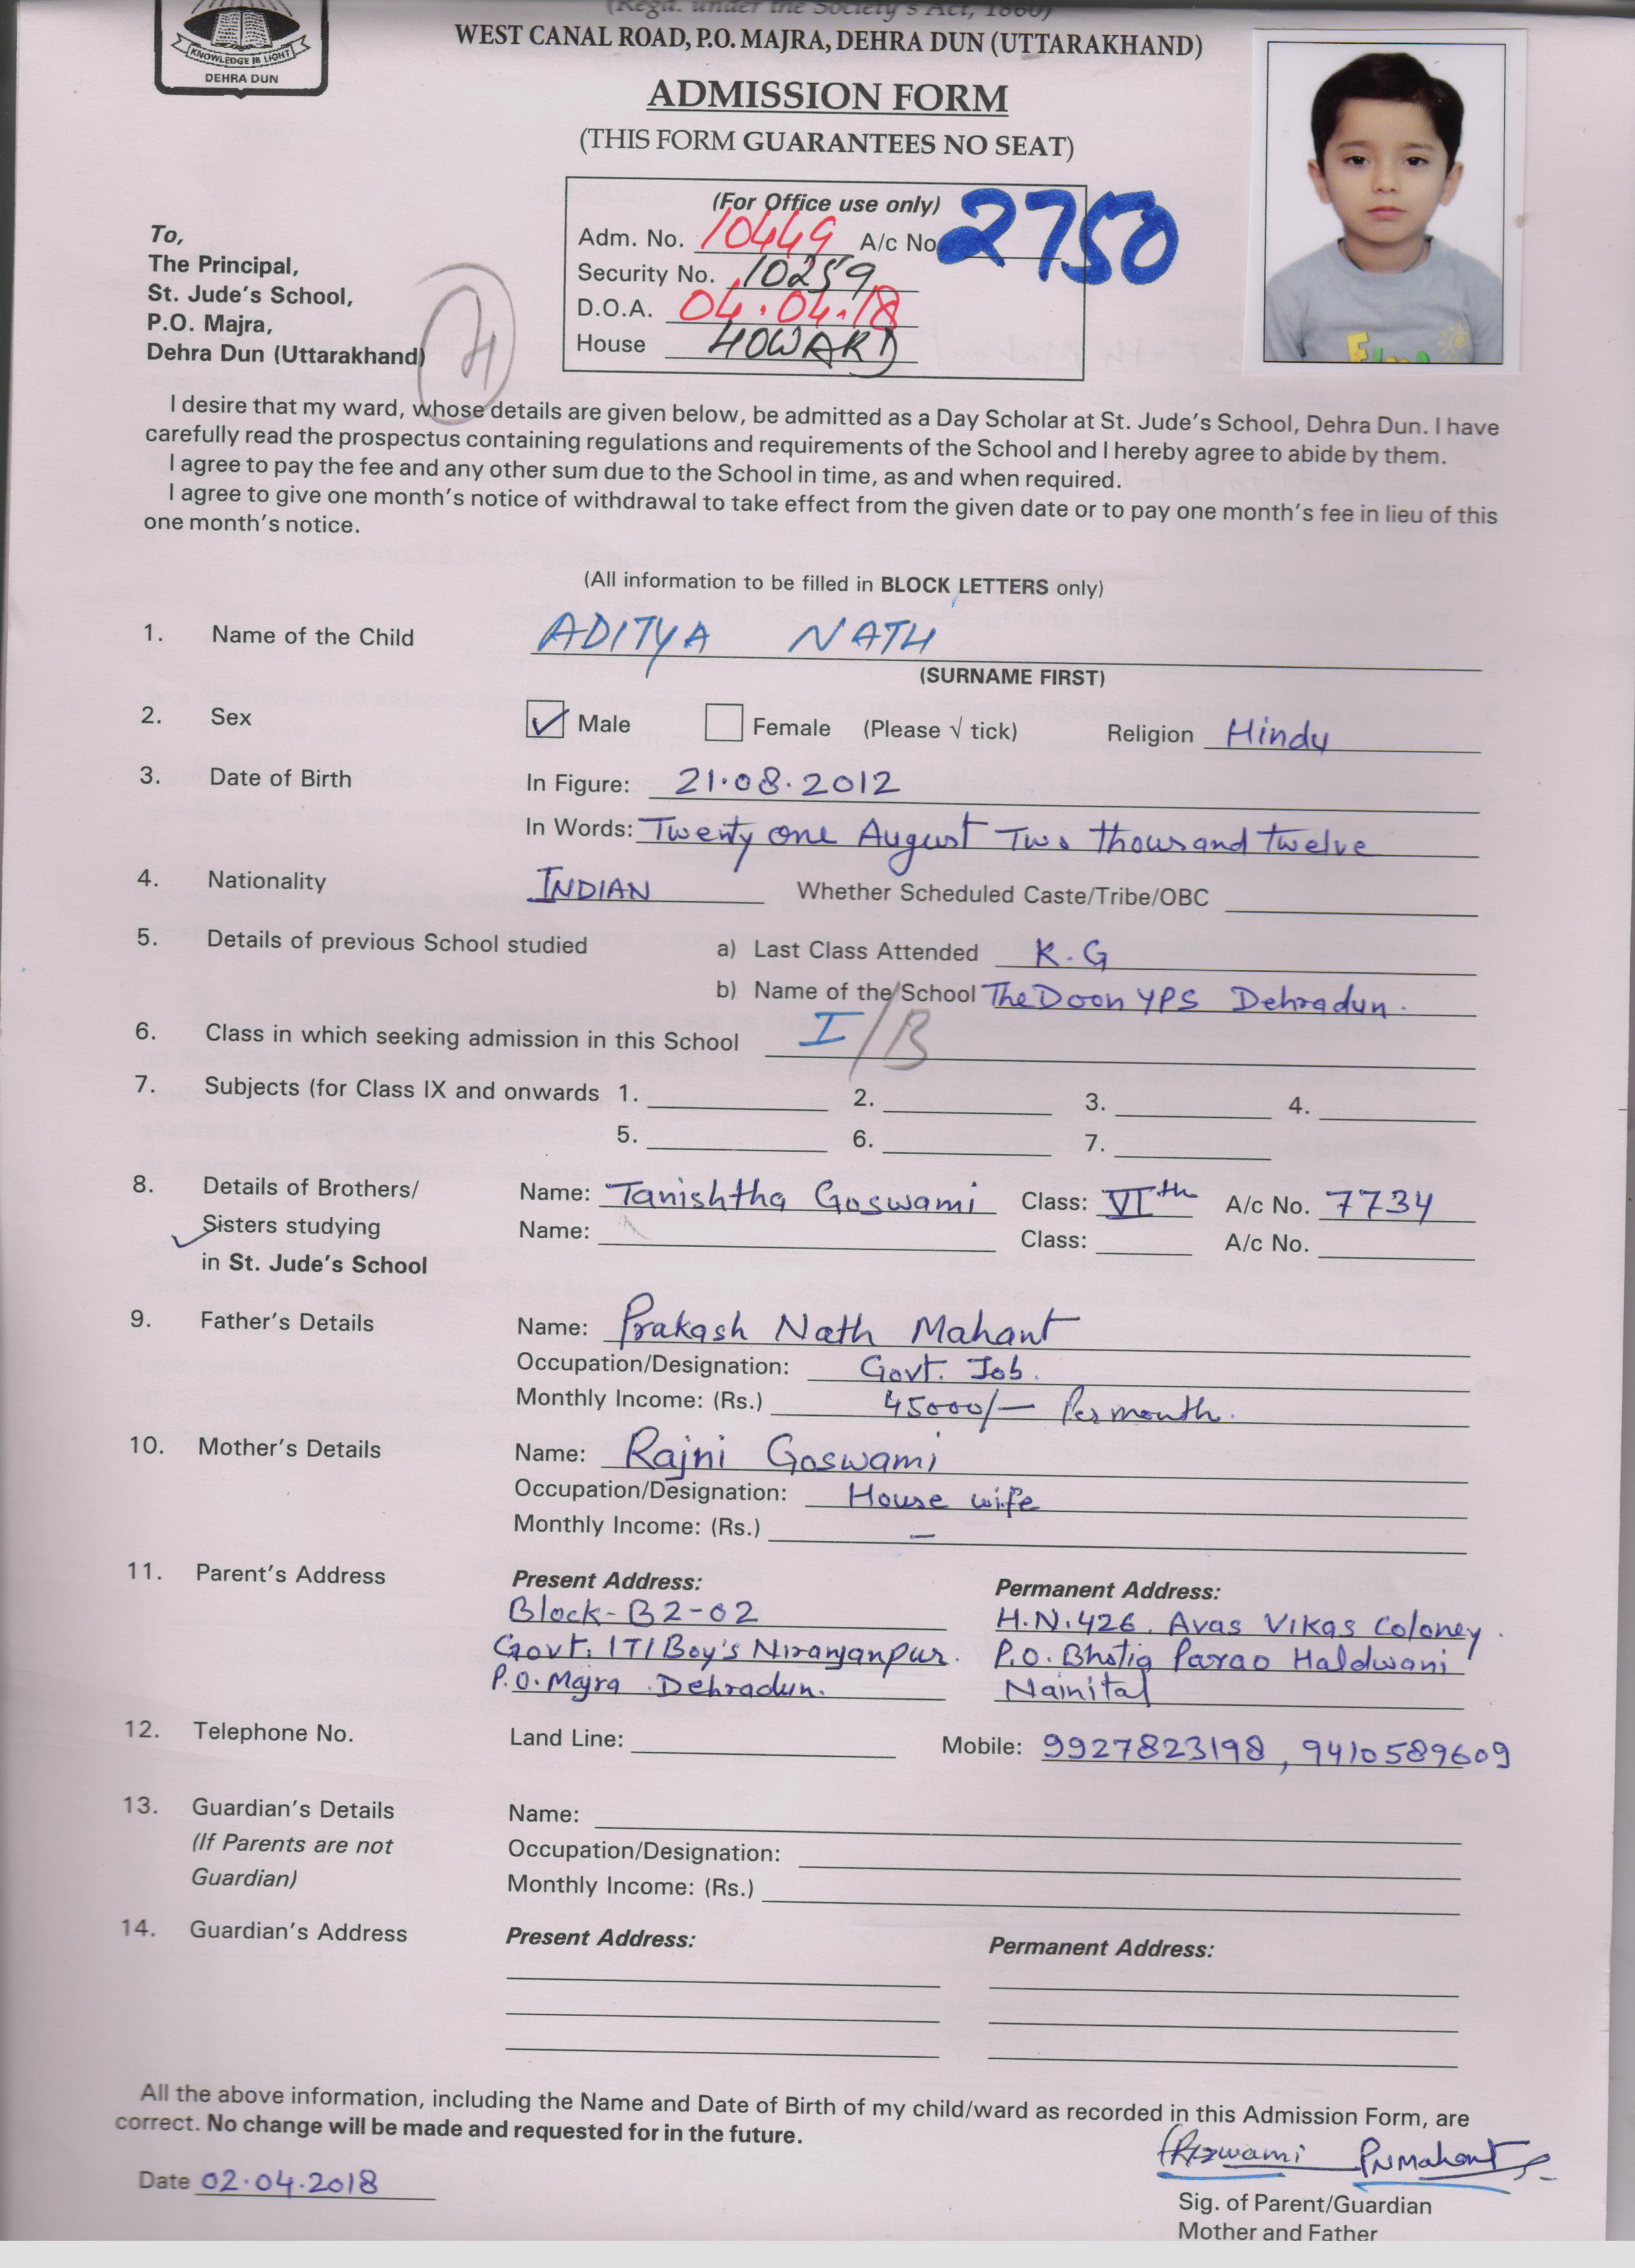 (Regd. under the Society's Act, 1860)
KNOWLEDGE IS LIGHT
DEHRA DUN
WEST CANAL ROAD, P.O. MAJRA, DEHRA DUN (UTTARAKHAND)
ADMISSION FORM
(THIS FORM GUARANTEES NO SEAT)
(For Office use only)
Adm. No. 10449 A/c No 2750
Security No. 10259
D.O.A. 04.04.18
House HOWARD
To,
The Principal,
St. Jude's School,
P.O. Majra,
Dehra Dun (Uttarakhand)
I desire that my ward, whose details are given below, be admitted as a Day Scholar at St. Jude's School, Dehra Dun. I have
carefully read the prospectus containing regulations and requirements of the School and I hereby agree to abide by them.
I agree to pay the fee and any other sum due to the School in time, as and when required.
I agree to give one month's notice of withdrawal to take effect from the given date or to pay one month's fee in lieu of this
one month's notice.
(All information to be filled in BLOCK LETTERS only)
1. Name of the Child ADITYA NATH
(SURNAME FIRST)
2. Sex Male Female (Please √ tick) Religion Hindu
3. Date of Birth In Figure: 21.08.2012
In Words: Twenty one August Two thousand twelve
4. Nationality INDIAN Whether Scheduled Caste/Tribe/OBC
5. Details of previous School studied a) Last Class Attended K.G
b) Name of the School The Doon YPS Dehradun.
6. Class in which seeking admission in this School I/B
7. Subjects (for Class IX and onwards 1. 2. 3. 4.
5. 6. 7.
8. Details of Brothers/ Name: Tanishtha Goswami Class: VIth A/c No. 7734
Sisters studying Name: Class: A/c No.
in St. Jude's School
9. Father's Details Name: Prakash Nath Mahant
Occupation/Designation: Govt. Job.
Monthly Income: (Rs.) 45000/- Per month.
10. Mother's Details Name: Rajni Goswami
Occupation/Designation: House wife
Monthly Income: (Rs.) –
11. Parent's Address Present Address: Permanent Address:
Block-B2-02 H.N.426, Avas Vikas Coloney.
Govt. ITI Boy's Niranjanpur. P.O. Bhotia Parao Haldwani
P.O. Majra Dehradun. Nainital
12. Telephone No. Land Line: Mobile: 9927823198, 9410589609
13. Guardian's Details Name:
(If Parents are not Occupation/Designation:
Guardian) Monthly Income: (Rs.)
14. Guardian's Address Present Address: Permanent Address:
All the above information, including the Name and Date of Birth of my child/ward as recorded in this Admission Form, are
correct. No change will be made and requested for in the future.
PNMahant
Date 02.04.2018
Sig. of Parent/Guardian
Mother and Father